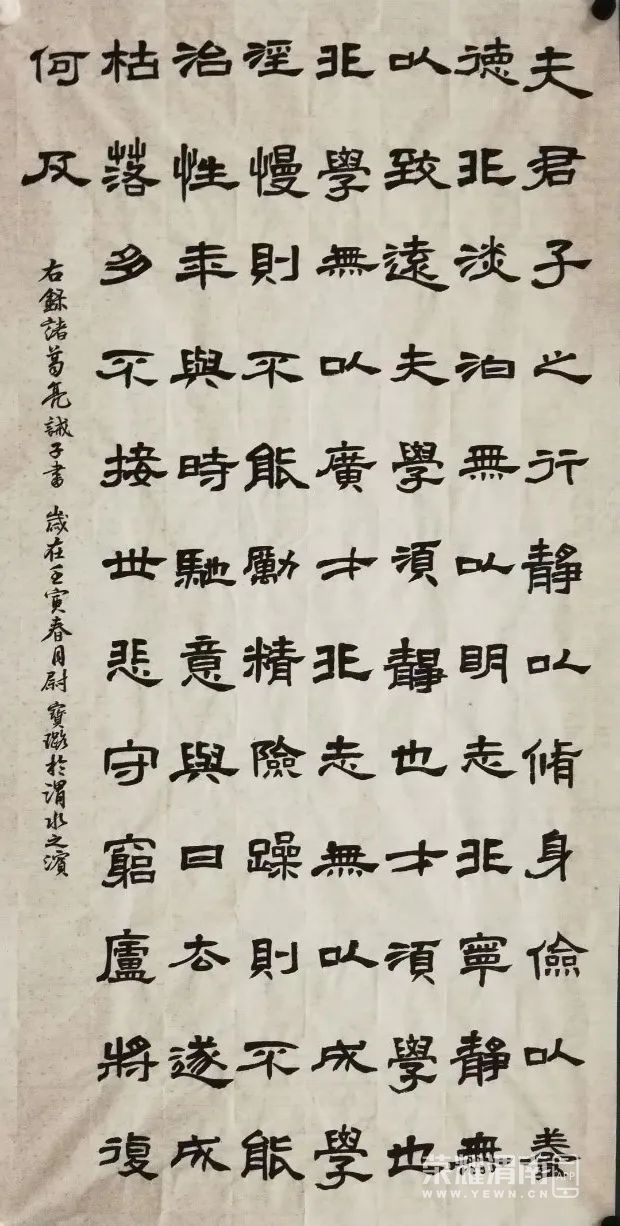 夫君子之行靜以脩身儉以養
德非淡泊無以明志非寧靜無
以致遠夫學須靜也才須學也
非學無以廣才非志無以成學
淫慢則不能勵精險躁則不能
治性年與時馳意與日去遂成
枯落多不接世悲守窮廬將復
何及
右錄諸葛亮誡子書 歲在壬寅春月尉寶璐於渭水之濱
荣耀渭南 APP
WWW.YEWN.CN